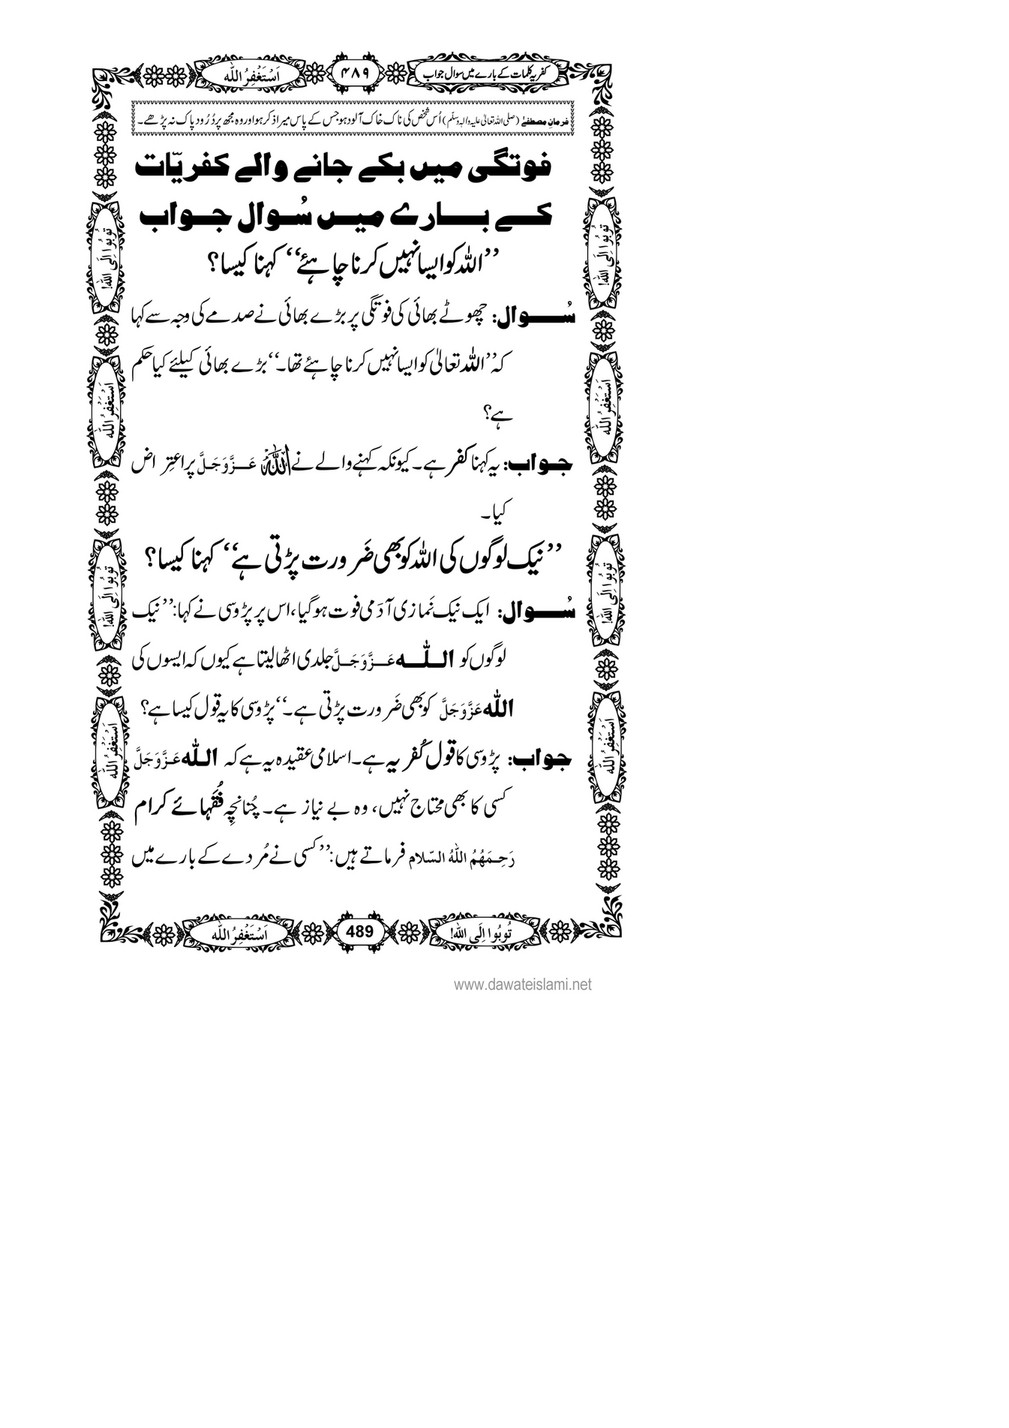 کفریہ کلمات کے بارے میں سوال جواب
۴۸۹
اَسْتَغْفِرُ اللہ
فرمانِ مصطفٰے (صلی اللہ تعالیٰ علیہ والہٖ وسلّم) اُس شخص کی ناک خاک آلود ہو جس کے پاس میرا ذکر ہو اور وہ مجھ پر دُرُود پاک نہ پڑھے۔
فوتگی میں بکے جانے والے کفریّات
کے بارے میں سُوال جواب
’’اللہ کو ایسا نہیں کرنا چاہئے‘‘ کہنا کیسا؟
سُوال: چھوٹے بھائی کی فوتگی پر بڑے بھائی نے صدمے کی وجہ سے کہا
کہ’’اللہ تعالیٰ کو ایسا نہیں کرنا چاہئے تھا۔‘‘ بڑے بھائی کیلئے کیا حکم
ہے؟
جواب: یہ کہنا کفر ہے۔ کیونکہ کہنے والے نے اللہ عَزَّوَجَلَّ پر اعتِراض
کیا۔
’’نیک لوگوں کی اللہ کو بھی ضَرورت پڑتی ہے‘‘ کہنا کیسا؟
سُوال: ایک نیک نَمازی آدَمی فوت ہو گیا، اس پر پڑوسی نے کہا: ’’نیک
لوگوں کو اللہ عَزَّوَجَلَّ جلدی اٹھا لیتا ہے کیوں کہ ایسوں کی
اللہ عَزَّوَجَلَّ کو بھی ضَرورت پڑتی ہے۔‘‘ پڑوسی کا یہ قول کیسا ہے؟
جواب: پڑوسی کا قول کُفریہ ہے۔ اسلامی عقیدہ یہ ہے کہ اللہ عَزَّوَجَلَّ
کسی کا بھی محتاج نہیں، وہ بے نیاز ہے۔ چُنانچِہ فُقَہائے کرام
رَحِمَہُمُ اللہُ السّلام فرماتے ہیں: ’’کسی نے مُردے کے بارے میں
تُوبُوا اِلَی اللہ!
اَسْتَغْفِرُ اللہ
تُوبُوا اِلَی اللہ!
اَسْتَغْفِرُ اللہ
تُوبُوا اِلَی اللہ!
اَسْتَغْفِرُ اللہ
تُوبُوا اِلَی اللہ!
اَسْتَغْفِرُ اللہ
تُوبُوا اِلَی اللہ!
489
اَسْتَغْفِرُ اللہ
www.dawateislami.net